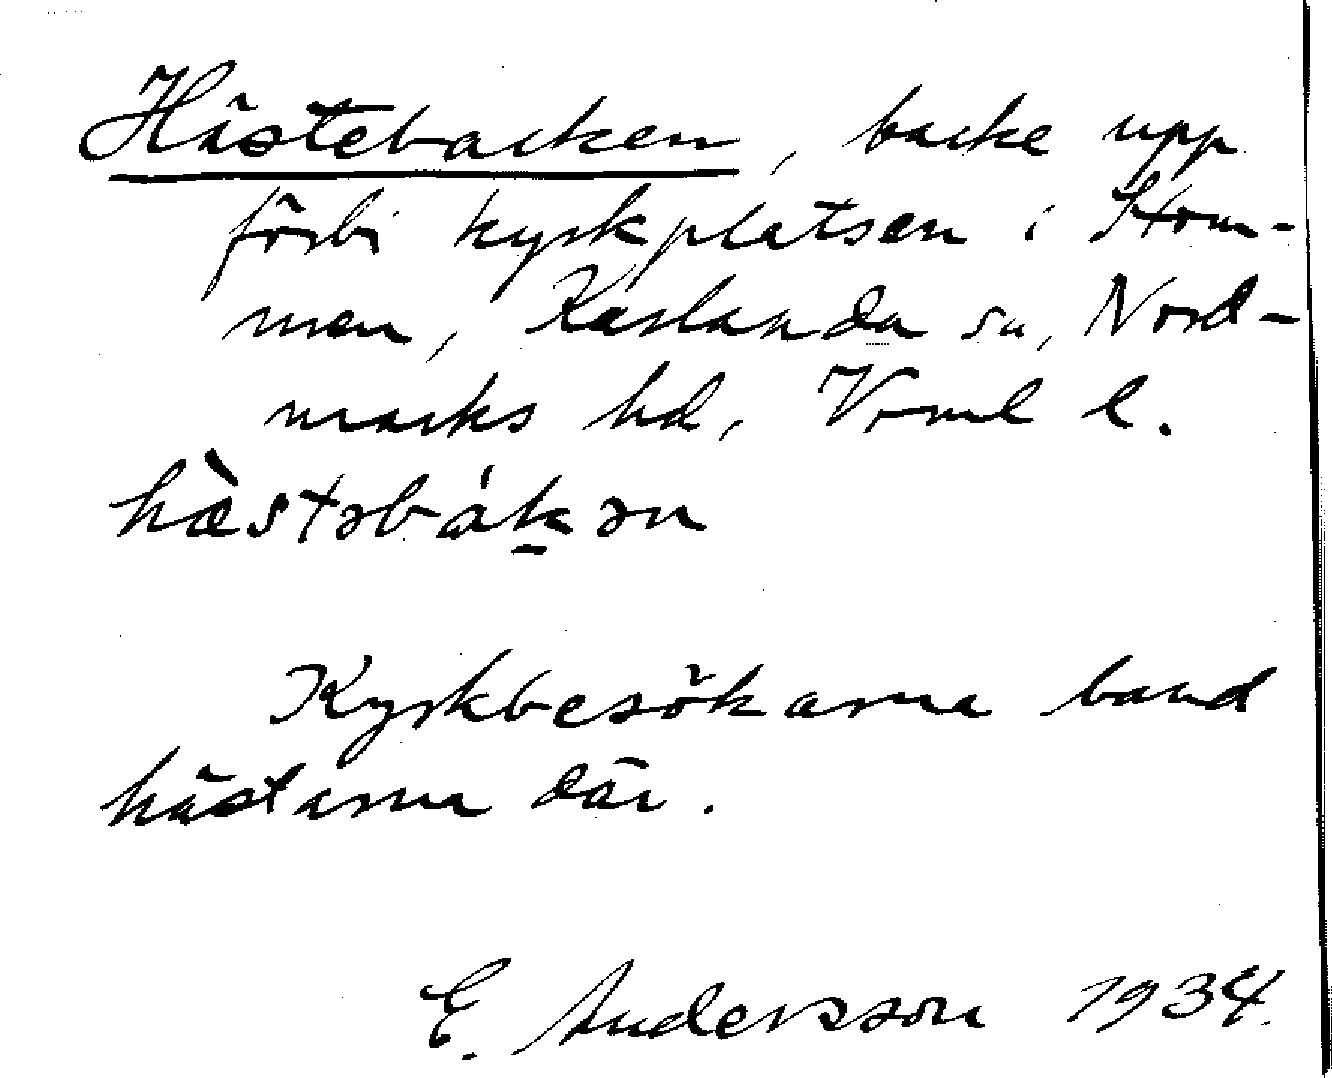 Hästebacken, backe upp
förbi kyrkplatsen i Stom-
men, Karlanda sn, Nord-
marks hd, Vrml l.
hæ̀stəbák̲ən
Kyrkbesökarna band
hästarna där.
E. Andersson 1934.